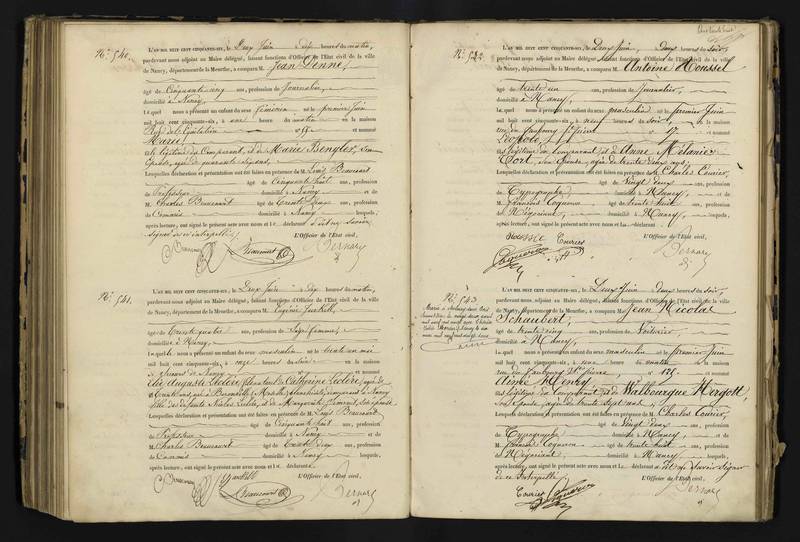 No. 540.
L'AN MIL HUIT CENT CINQUANTE-SIX, le Deux Juin, dix heures du matin,
pardevant nous adjoint au Maire délégué, faisant fonctions d'Officier de l'Etat civil de la ville
de Nancy, département de la Meurthe, a comparu M. Jean Denne,
âgé de Cinquante cinq ans, profession de Journalier,
domicilié à Nancy,
lequel nous a présenté un enfant du sexe féminin né le premier Juin
mil huit cent cinquante-six, à onze heures du matin en la maison
et nommé
Marie,
fils légitime du Comparant, et de Marie Bengler, son
Epouse, agée de quarante ans,
Lesquelles déclaration et présentation ont été faites en présence de M. Louis Beaucourt
âgé de Cinquante huit ans, profession
de Professeur domicilié à Nancy et de
M. Charles Beaucourt âgé de trente deux ans, profession
de Commis domicilié à Nancy lesquels,
après lecture, ont signé le présent acte avec nous et le déclarant
L'Officier de l'Etat civil,
Beaucourt
Bernard
No. 541.
L'AN MIL HUIT CENT CINQUANTE-SIX, le Deux Juin, dix heures du matin,
pardevant nous adjoint au Maire délégué, faisant fonctions d'Officier de l'Etat civil de la ville
de Nancy, département de la Meurthe, a comparu M. Eugénie
âgé de Trente quatre ans, profession de Sage femme,
domiciliée à Nancy,
lequel nous a présenté un enfant du sexe masculin né le trente un mai
mil huit cent cinquante-six, à onze heures du soir en la maison
de secours de Nancy et nommé
Auguste Leclère, Enfant de Catherine Leclère, agée de
Lesquelles déclaration et présentation ont été faites en présence de M. Louis Beaucourt
âgé de Cinquante huit ans, profession
de Professeur domicilié à Nancy et de
M. Charles Beaucourt âgé de trente deux ans, profession
de Commis domicilié à Nancy lesquels,
après lecture, ont signé le présent acte avec nous et la déclarante.
L'Officier de l'Etat civil,
Beaucourt
Bernard
No. 542.
L'AN MIL HUIT CENT CINQUANTE-SIX, le Deux Juin, deux heures du soir,
pardevant nous adjoint au Maire délégué, faisant fonctions d'Officier de l'Etat civil de la ville
de Nancy, département de la Meurthe, a comparu M. Antoine Houssel
âgé de trente un ans, profession de Journalier,
domicilié à Nancy,
lequel nous a présenté un enfant du sexe masculin né le premier Juin
mil huit cent cinquante-six, à neuf heures du soir, en la maison
rue du faubourg St. pierre no 17 et nommé
Léopold,
fils légitime du Comparant et de Anne Mélanie
Tort, son Epouse, agée de trente deux ans,
Lesquelles déclaration et présentation ont été faites en présence de M. Charles Courier,
âgé de Vingt deux ans, profession
de Typographe domicilié à Nancy, et de
M. François Coqueron âgé de trente huit ans, profession
de Négociant, domicilié à Nancy, lesquels,
après lecture, ont signé le présent acte avec nous et le déclarant
L'Officier de l'Etat civil,
Courier
Bernard
No. 543
L'AN MIL HUIT CENT CINQUANTE-SIX, le Deux Juin, deux heures du soir,
pardevant nous adjoint au Maire délégué, faisant fonctions d'Officier de l'Etat civil de la ville
de Nancy, département de la Meurthe, a comparu M. Jean Nicolas
Schaubert,
âgé de trente cinq ans, profession de Voiturier
domicilié à Nancy,
lequel nous a présenté un enfant du sexe masculin né le premier Juin
mil huit cent cinquante-six, à onze heures du matin en la maison
rue du faubourg St. pierre no 125 et nommé
Aimée Henry
fils légitime du Comparant et de Walbourgue Hergott
son Epouse, agée de trente sept ans.
Lesquelles déclaration et présentation ont été faites en présence de M. Charles Courier,
âgé de Vingt deux ans, profession
de Typographe domicilié à Nancy, et de
M. François Coqueron âgé de trente huit ans, profession
de Négociant, domicilié à Nancy, lesquels,
après lecture, ont signé le présent acte avec nous et le déclarant a dit ne savoir signer
de ce Interpellé.
L'Officier de l'Etat civil,
Courier
Bernard